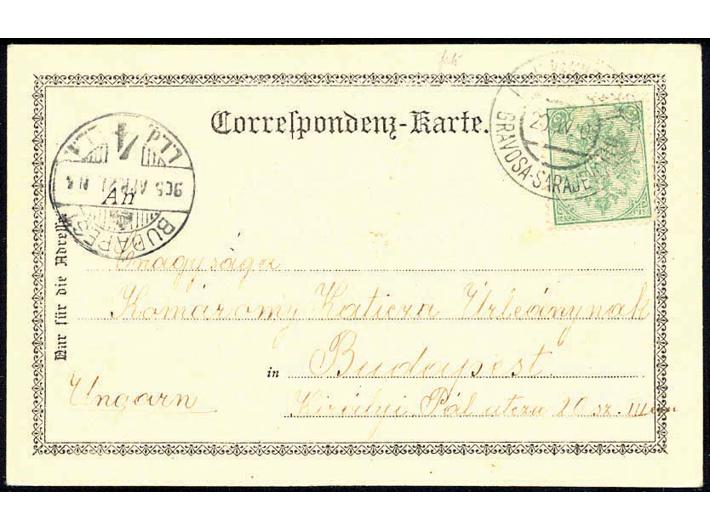 Correspondenz-Karte.
GRAVOSA-SARAJEVO
BUDAPEST
905 APR
An
Nur für die Adresse
Önagysága
Komáromy Katicza Úrleánynak
in Budapest.
Ungarn
Királyi Pál utcza 20 sz. III em